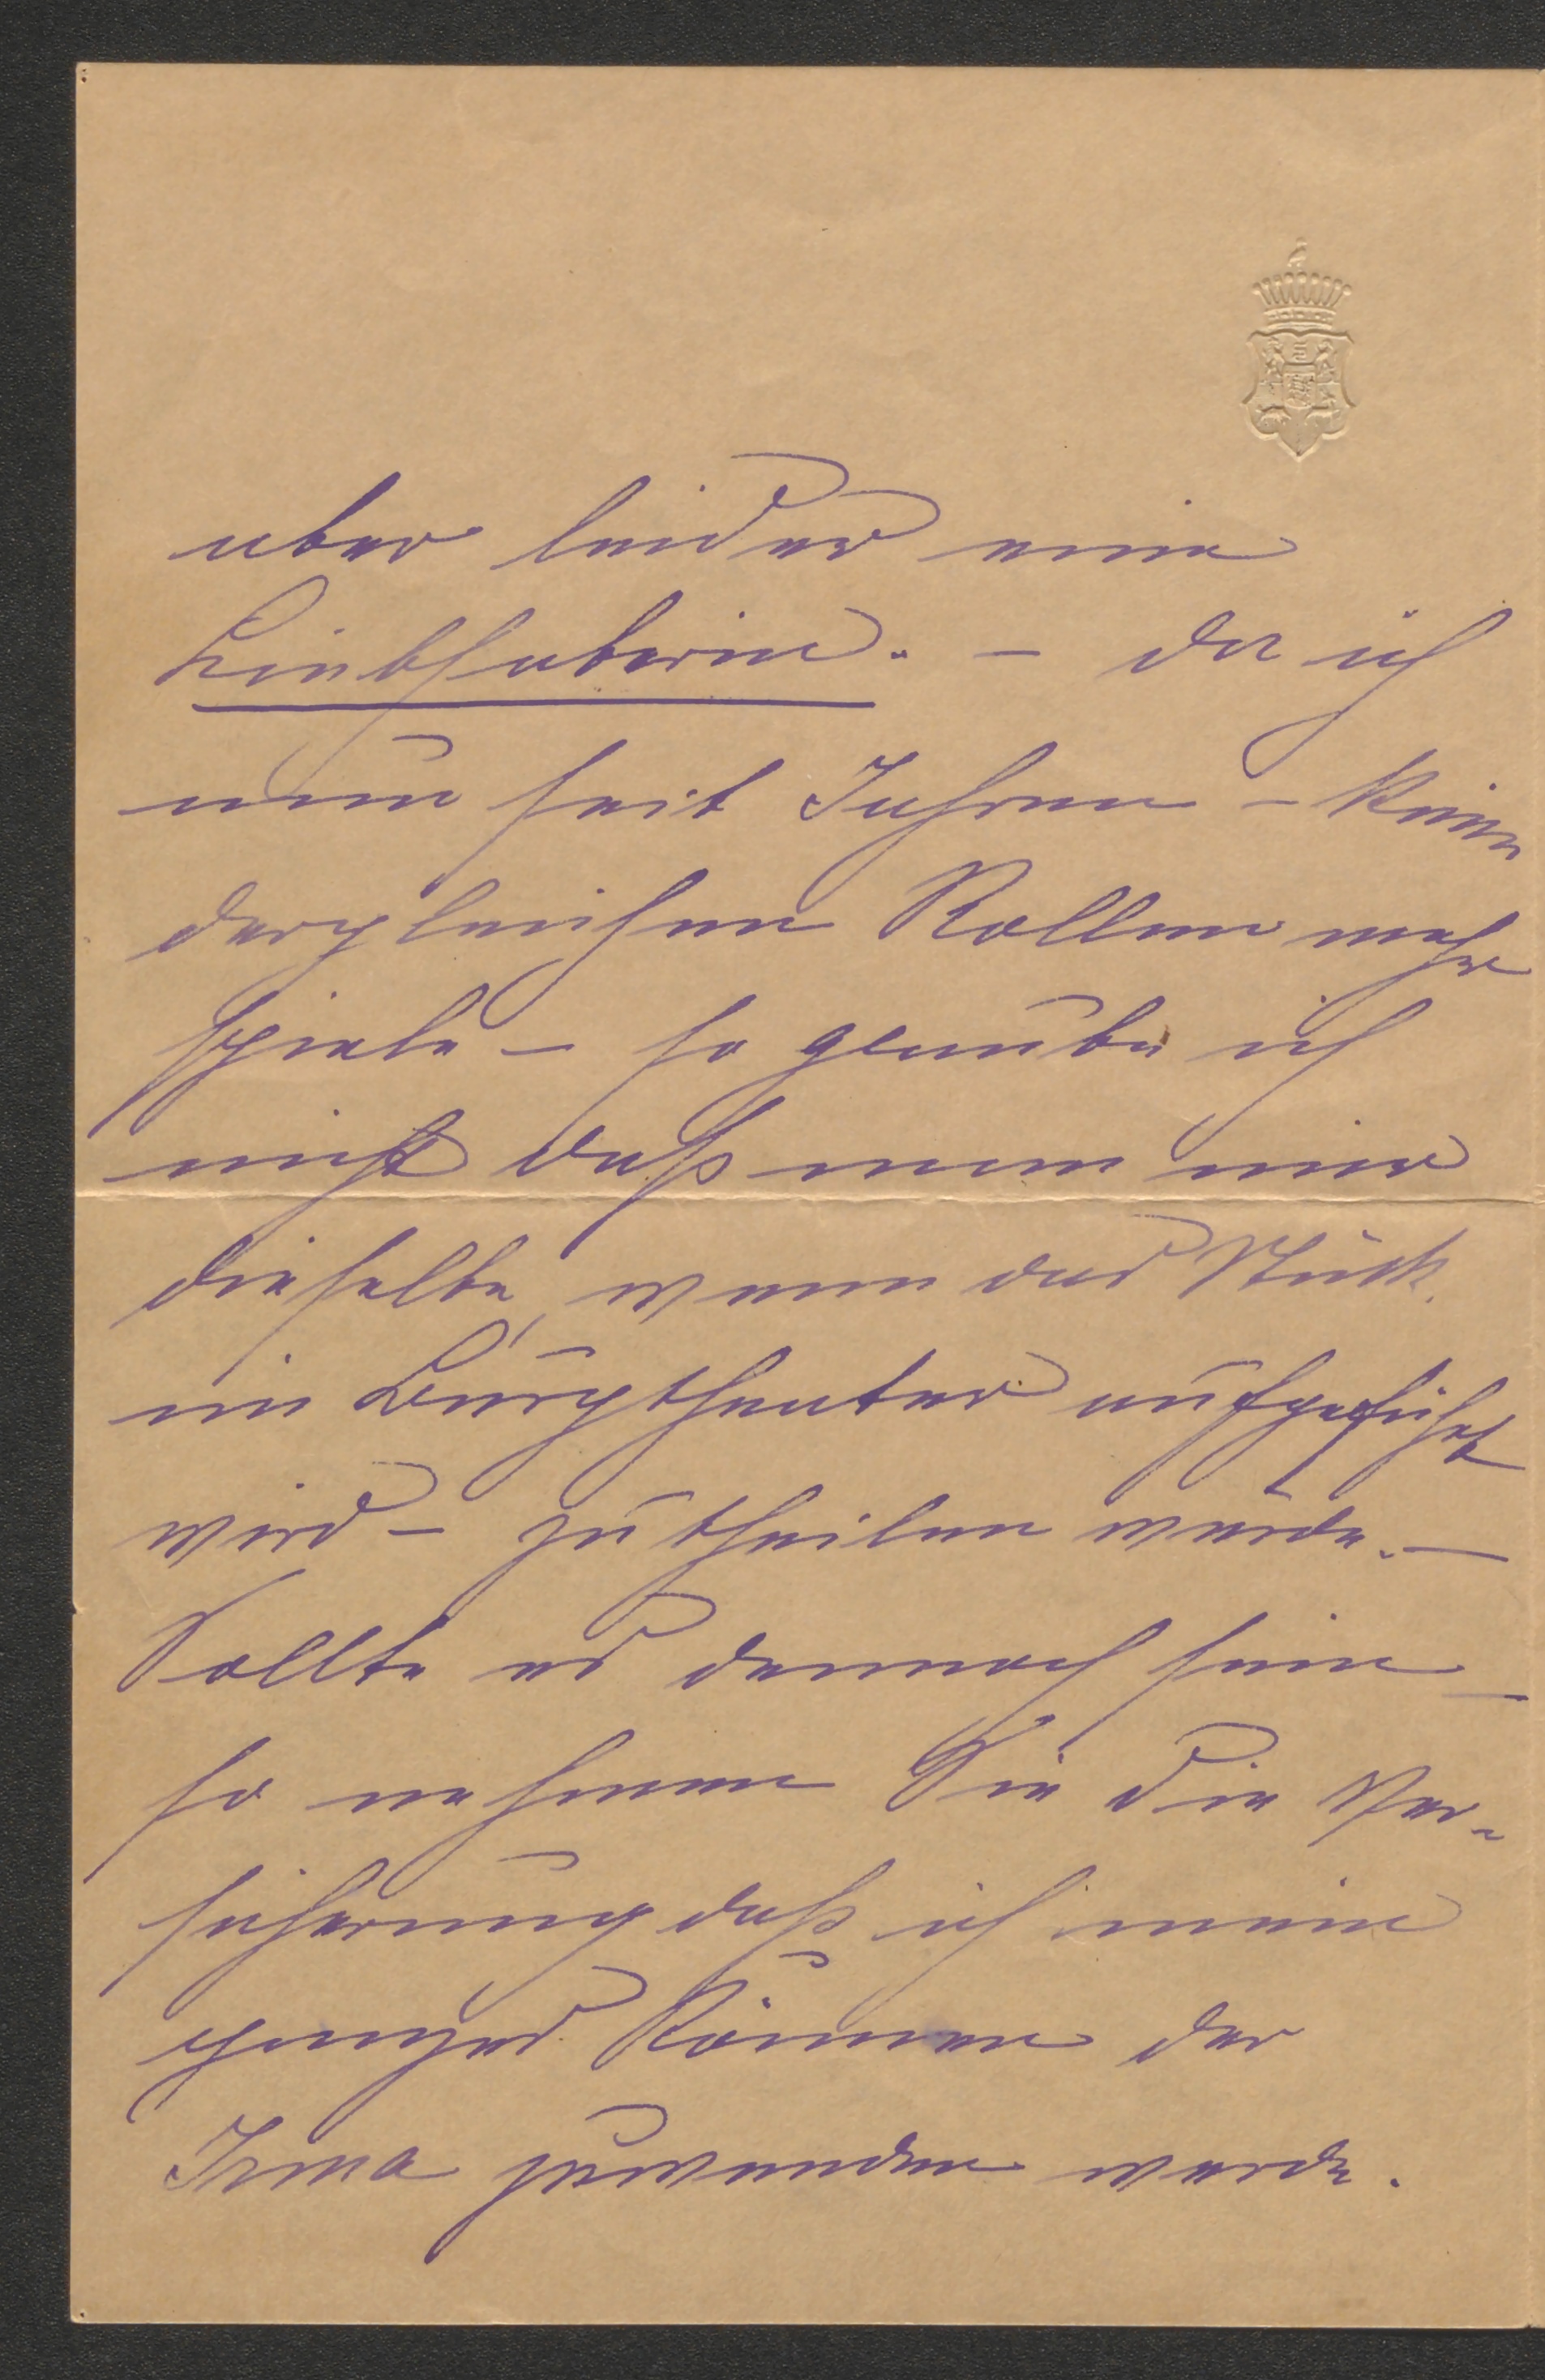 aber leider eine
Liebhaberin. – da ich
nun seit Jahren – keine
dergleichen Rollen mehr
spiele – so glaube ich
nicht daß man mir
dieselbe, wenn das Stück
im Burgtheater aufgeführt
wird – zutheilen werde. –
Sollte es dennoch sein –
so nehmen Sie die Ver-
sicherung daß ich mein
ganzes Können der
Irma zuwenden werde.